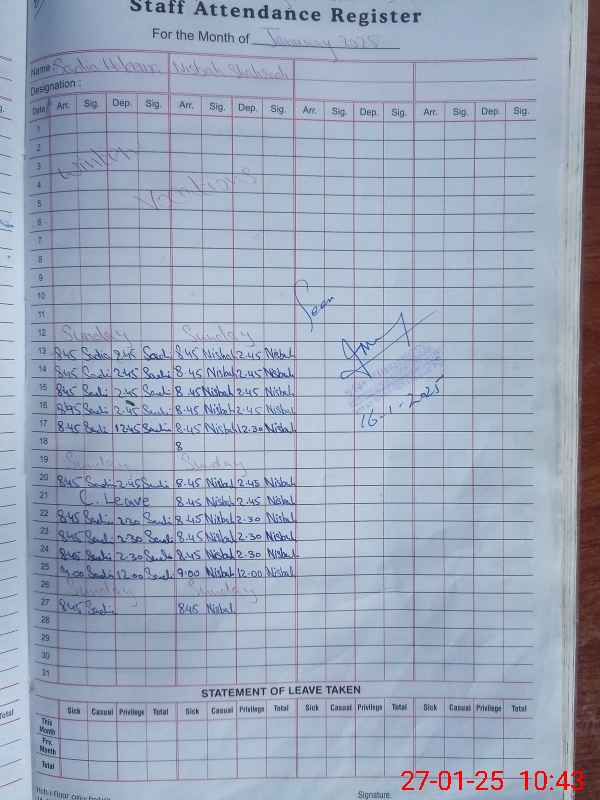 Staff Attendance Register
For the Month of January 2025
Name: Sadia Nisbah
Designation:
Date Arr. Sig. Dep. Sig. Arr. Sig. Dep. Sig. Arr. Sig. Dep. Sig. Arr. Sig. Dep. Sig.
1
2
3 Winter
4
5 Vacations
6
7
8
9
10
Seen
11
12 Sunday Sunday
13 8.45 Sadia 2.45 Sadi 8.45 Nisbah 2.45 Nisbah
14 8.45 Sadi 2.45 Sadi 8.45 Nisbah 2.45 Nisbah
15 8.45 Sadi 2.45 Sadi 8.45 Nisbah 2.45 Nisbah
16 8.45 Sadi 2.45 Sadi 8.45 Nisbah 2.45 Nisbah
16-1-2025
17 8.45 Sadi 12.45 Sadi 8.45 Nisbah 12.30 Nisbah
18 8
19 Sunday Sunday
20 8.45 Sadi 2.45 Sadi 8.45 Nisbah 2.45 Nisbah
21 C. Leave 8.45 Nisbah 2.45 Nisbah
22 8.45 Sadi 2.30 Sadi 8.45 Nisbah 2.30 Nisbah
23 8.45 Sadi 2.30 Sadi 8.45 Nisbah 2.30 Nisbah
24 8.45 Sadi 2.30 Sadi 8.45 Nisbah 2.30 Nisbah
25 9.00 Sadi 12.00 Sadi 9.00 Nisbah 12.00 Nisbah
26 Sunday Sunday
27 8.45 Sadi 8.45 Nisbah
28
29
30
31
STATEMENT OF LEAVE TAKEN
Sick Casual Privilege Total Sick Casual Privilege Total Sick Casual Privilege Total Sick Casual Privilege Total
This Month
Prv. Month
Total
Signature.
27-01-25 10:43